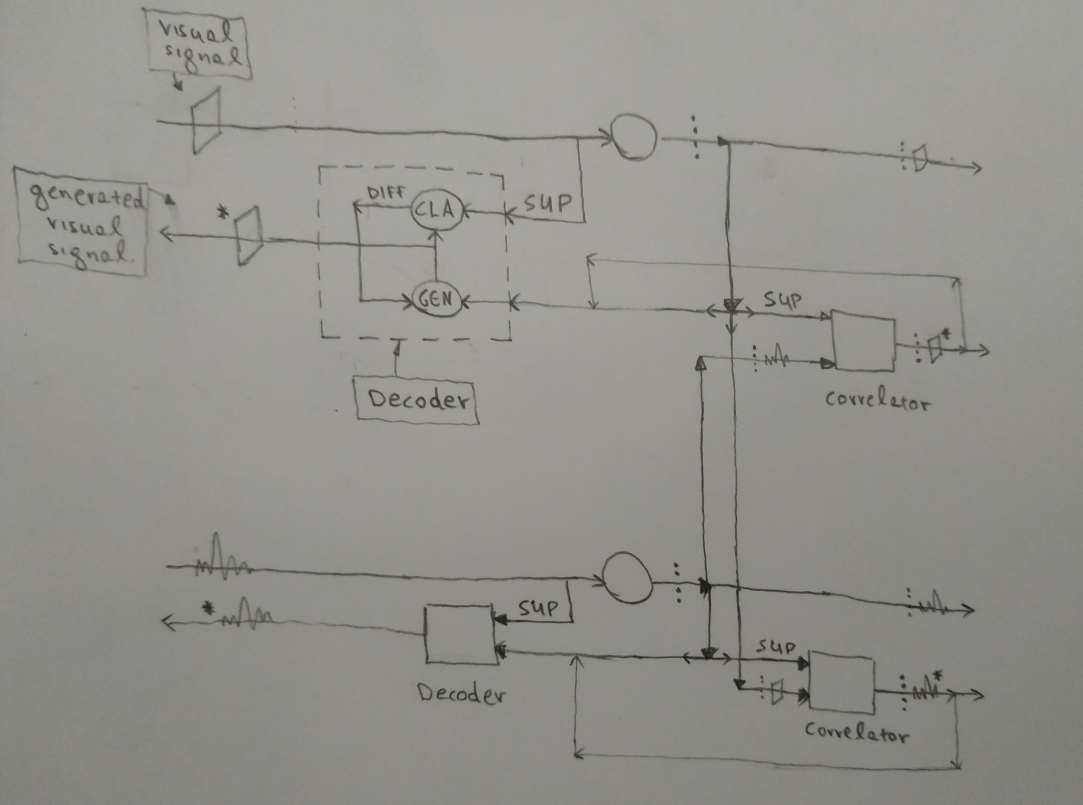 visual
signal
generated
visual
signal.
*
DIFF
CLA
SUP
GEN
SUP
*
Decoder
Correlator
*
SUP
SUP
*
Decoder
Correlator